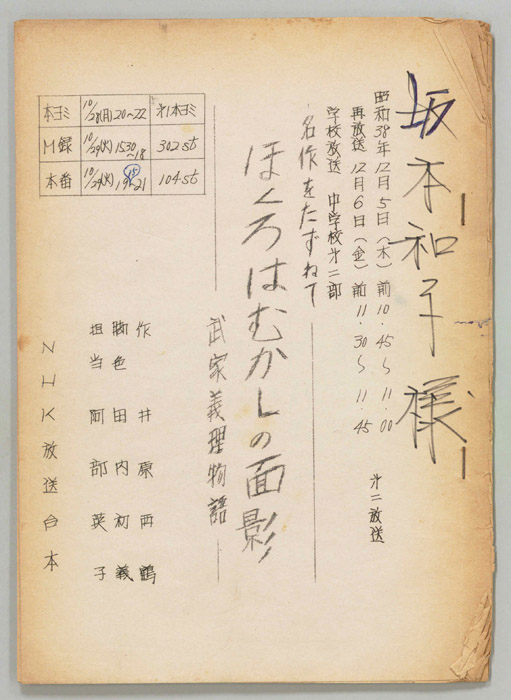 坂本和子様
昭和38年12月5日（木）前10.45〜11.00
再放送 12月6日（金）前11.30〜11.45
第二放送
学校放送 中学校第二部
名作をたずねて
ほくろはむかしの面影
武家義理物語
作 井原西鶴
脚色 田内初義
担当 阿部英子
NHK放送台本
本ヨミ 10/28(月)20〜22 第1本ヨミ
M録 10/29(火)1530〜18 302st
本番 10/29(火) 〜21 104st